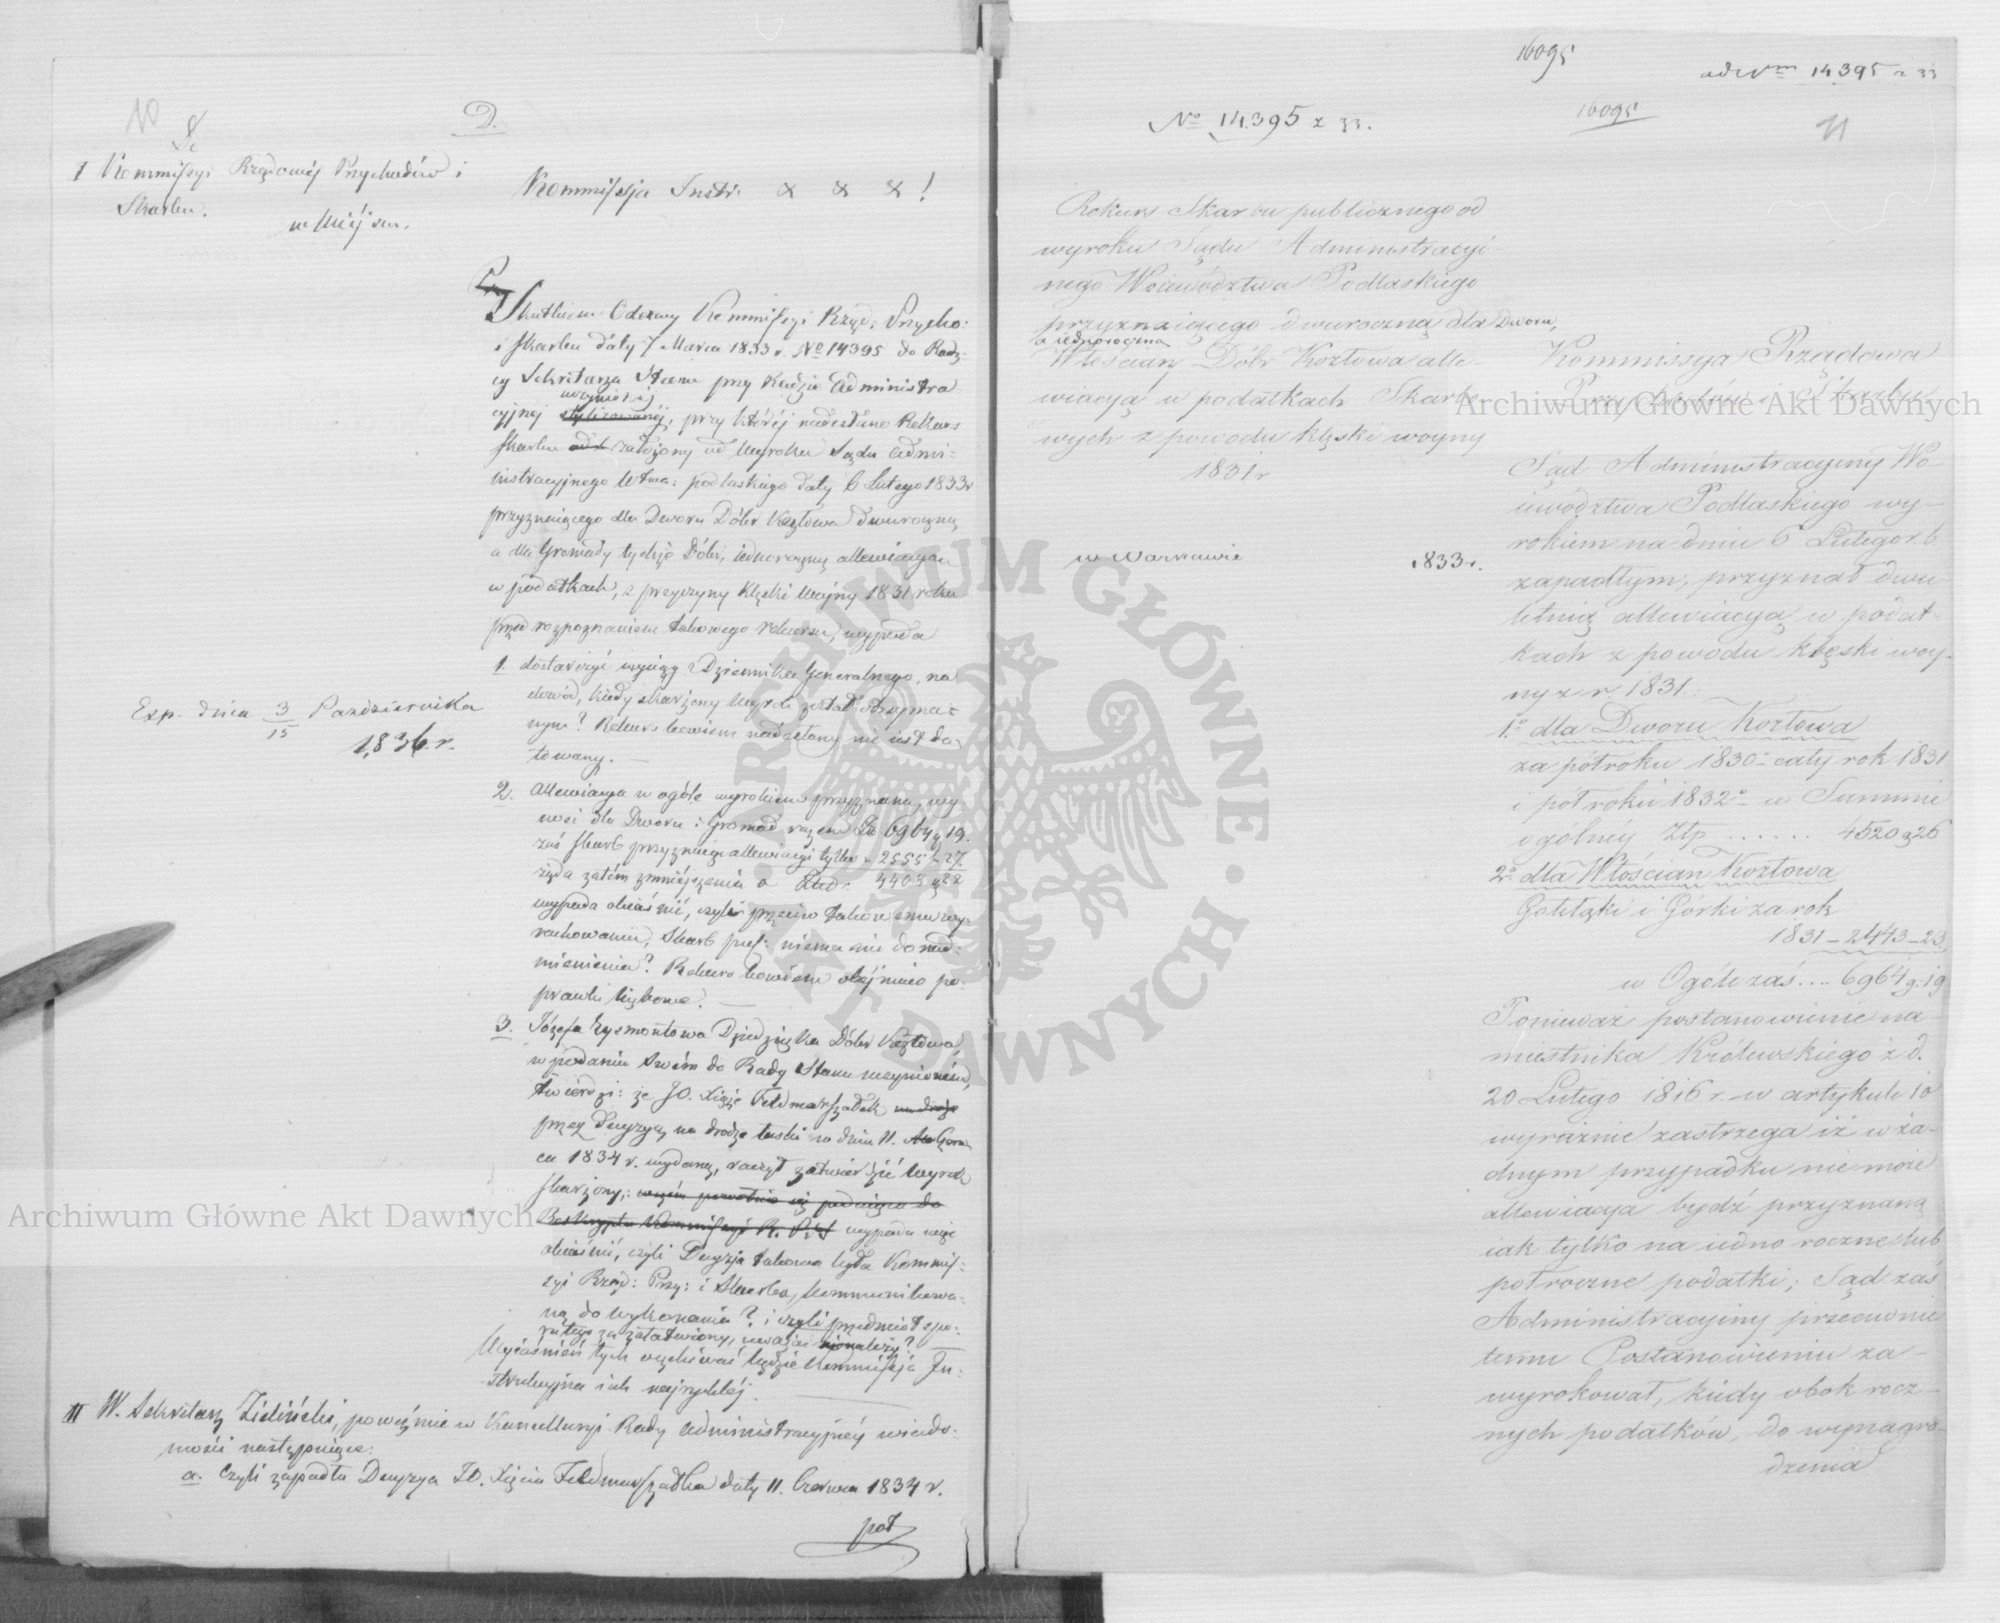 10
D.
I Kommissyi Rządowéj Przychodów i
Skarbu.
w Miéjscu.
Kommissja Instr. & & &!
Skutkiem Odezwy Kommissyi Rząd. Przycho:
i Skarbu daty 7 Marca 1833 r. No 14395 do Radz-
cy Sekretarza Stanu przy Radzie Administra
cyjnej uczynionéj, przy któréj nadesłano Rekurs
Skarbu założony od Wyroku Sądu Admi-
nistracyjnego Wtwa: podlaskiego daty 6 Lutego 1833 r
przyznaiącego dla Dworu Dóbr Kozłowa dwuroczną
a dla Gromady tychże Dóbr, iednoroczną allewiacyą
w podatkach, z przyczyny klęski Wojny 1831 roku
przed rozpoznaniem takowego rekursu, wypada
1. dostarczyć wyciąg z Dziennika Generalnego, na
dowód, kiedy skarżony Wyrok został otrzyma-
nym? Rekurs bowiem nadesłany nie iest da-
towany. —
2. Allewiacya w ogóle wyrokiem przyznana, wy
nosi dla Dworu i Gromad razem Zł 6964 g 19.
zaś Skarb przyznaie allewiacyi tylko - 2555 - 27.
żąda zatém zmniéjszenia o 4408 g 22
wypada obiaśnić, czyli przeciw takowemu wy
rachowaniu, Skarb niema nic do nad-
mienienia? Rekurs bowiem obéjmuie po-
3. Józefa Szymontowa Dziedziczka Dóbr Kozłowa,
w podaniu swém do Rady Stanu uczynioném,
twierdzi: że JO. Xiąże Feldmarszałek
przez Decyzyą na drodze łaski w dniu 11. Czerw
ca 1834 r. wydaną, raczył zatwierdzić Wyrok
skarżony,: wypada więc
obiaśnić, czyli Decyzja takowa była Kommis-
syi Rząd: Przy: i Skarbu, kommunikowa-
ną do wykonania? i czyli przedmiot spo-
ru tego za załatwiony, uważać należy?
Wyiaśnień tych oczekiwać będzie Kommissja In-
strukcyjna iak najrychléj.
Exp. dnia 3/15 Października
1836. r.
II W. Sekretarz Zieliński, poweźmie w Kancellaryi Rady Administracyjnéj wiado-
mości następuiące:
a. Czyli zapadła Decyzya JO. Xięcia Feldmarszałka daty 11. Czerwca 1834 r.
16095
ad Num 14,395 z 33
16095
11
No 14.395 z 33.
Rekurs Skarbu publicznego od
wyroku Sądu Administracyi
nego Woiewództwa Podlaskiego
przyznaiącego dwuroczną dla Dworu,
a iednoroczną
Włościan Dóbr Kozłowa alle-
wiacyą w podatkach Skarbo
wych z powodu klęski woyny
1831 r
w Warszawie 1833 r.
Kommissya Rządowa
Przychodów i Skarbu
Sąd Administracyiny Wo-
iewództwa Podlaskiego wy-
rokiem na dniu 6 Lutego r. b
zapadłym, przyznał dwu-
letnią allewiacyą w podat-
kach z powodu klęski woy-
ny z r. 1831.
1.o dla Dworu Kozłowa
za półroku 1830. cały rok 1831
i pół roku 1832 w Summie
ogólnéy Złp ...... 4520 g 26
2.o dla Włościan Kozłowa
Gołełąki i Górki za rok
1831 - 2443 - 23
w Ogóle zaś .... 6964 g. 19
Ponieważ postanowienie na-
miestnika Królewskiego z d.
20 Lutego 1816 r. w artykule 10
wyraźnie zastrzega iż w ża-
dnym przypadku nie może
allewiacya bydź przyznaną
iak tylko na iedno roczne lub
pół roczne podatki; Sąd zaś
Administracyiny przeciwnie
temu Postanowieniu za-
wyrokował, kiedy obok rocz-
nych podatków, do wynagro-
dzenia
Archiwum Główne Akt Dawnych
Archiwum Główne Akt Dawnych
ARCHIWUM GŁÓWNE AKT DAWNYCH W